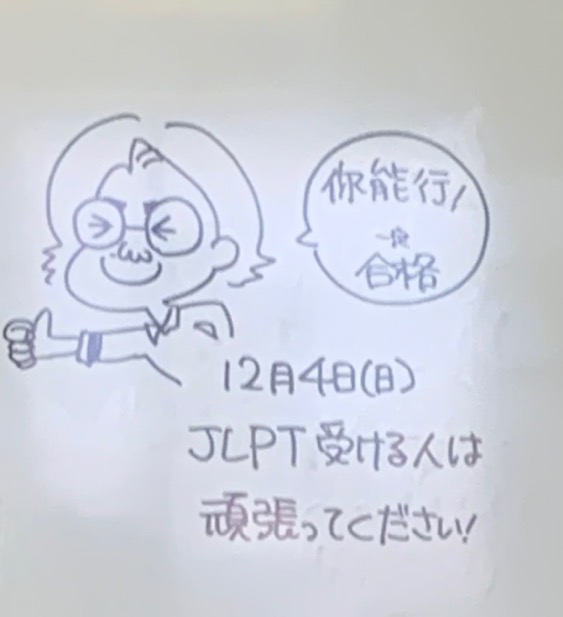 你能行!
一定
合格
12月4日(日)
JLPT 受ける人は
頑張ってください!